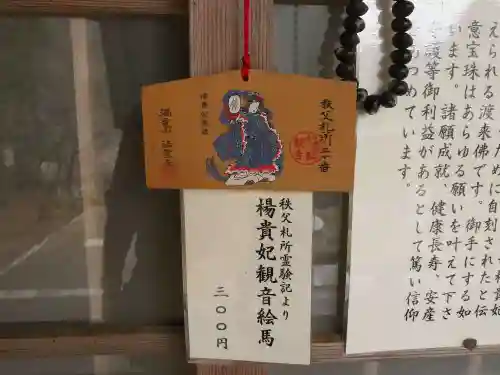 ために自刻されたと伝
えられる渡来佛です。御手にする如
意宝珠はあらゆる願いを叶えて下さ
います。諸願成就、健康長寿、安産
護等御利益があるとして篤い信仰
あつめています。
秩父札所三十番
法雲寺
秩父札所霊験記より
楊貴妃観音絵馬
三〇〇円